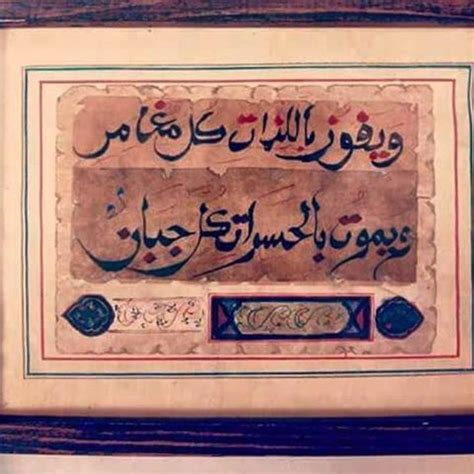 ويفوز باللذات كل مغامر
ويموت بالحسرات كل جبان